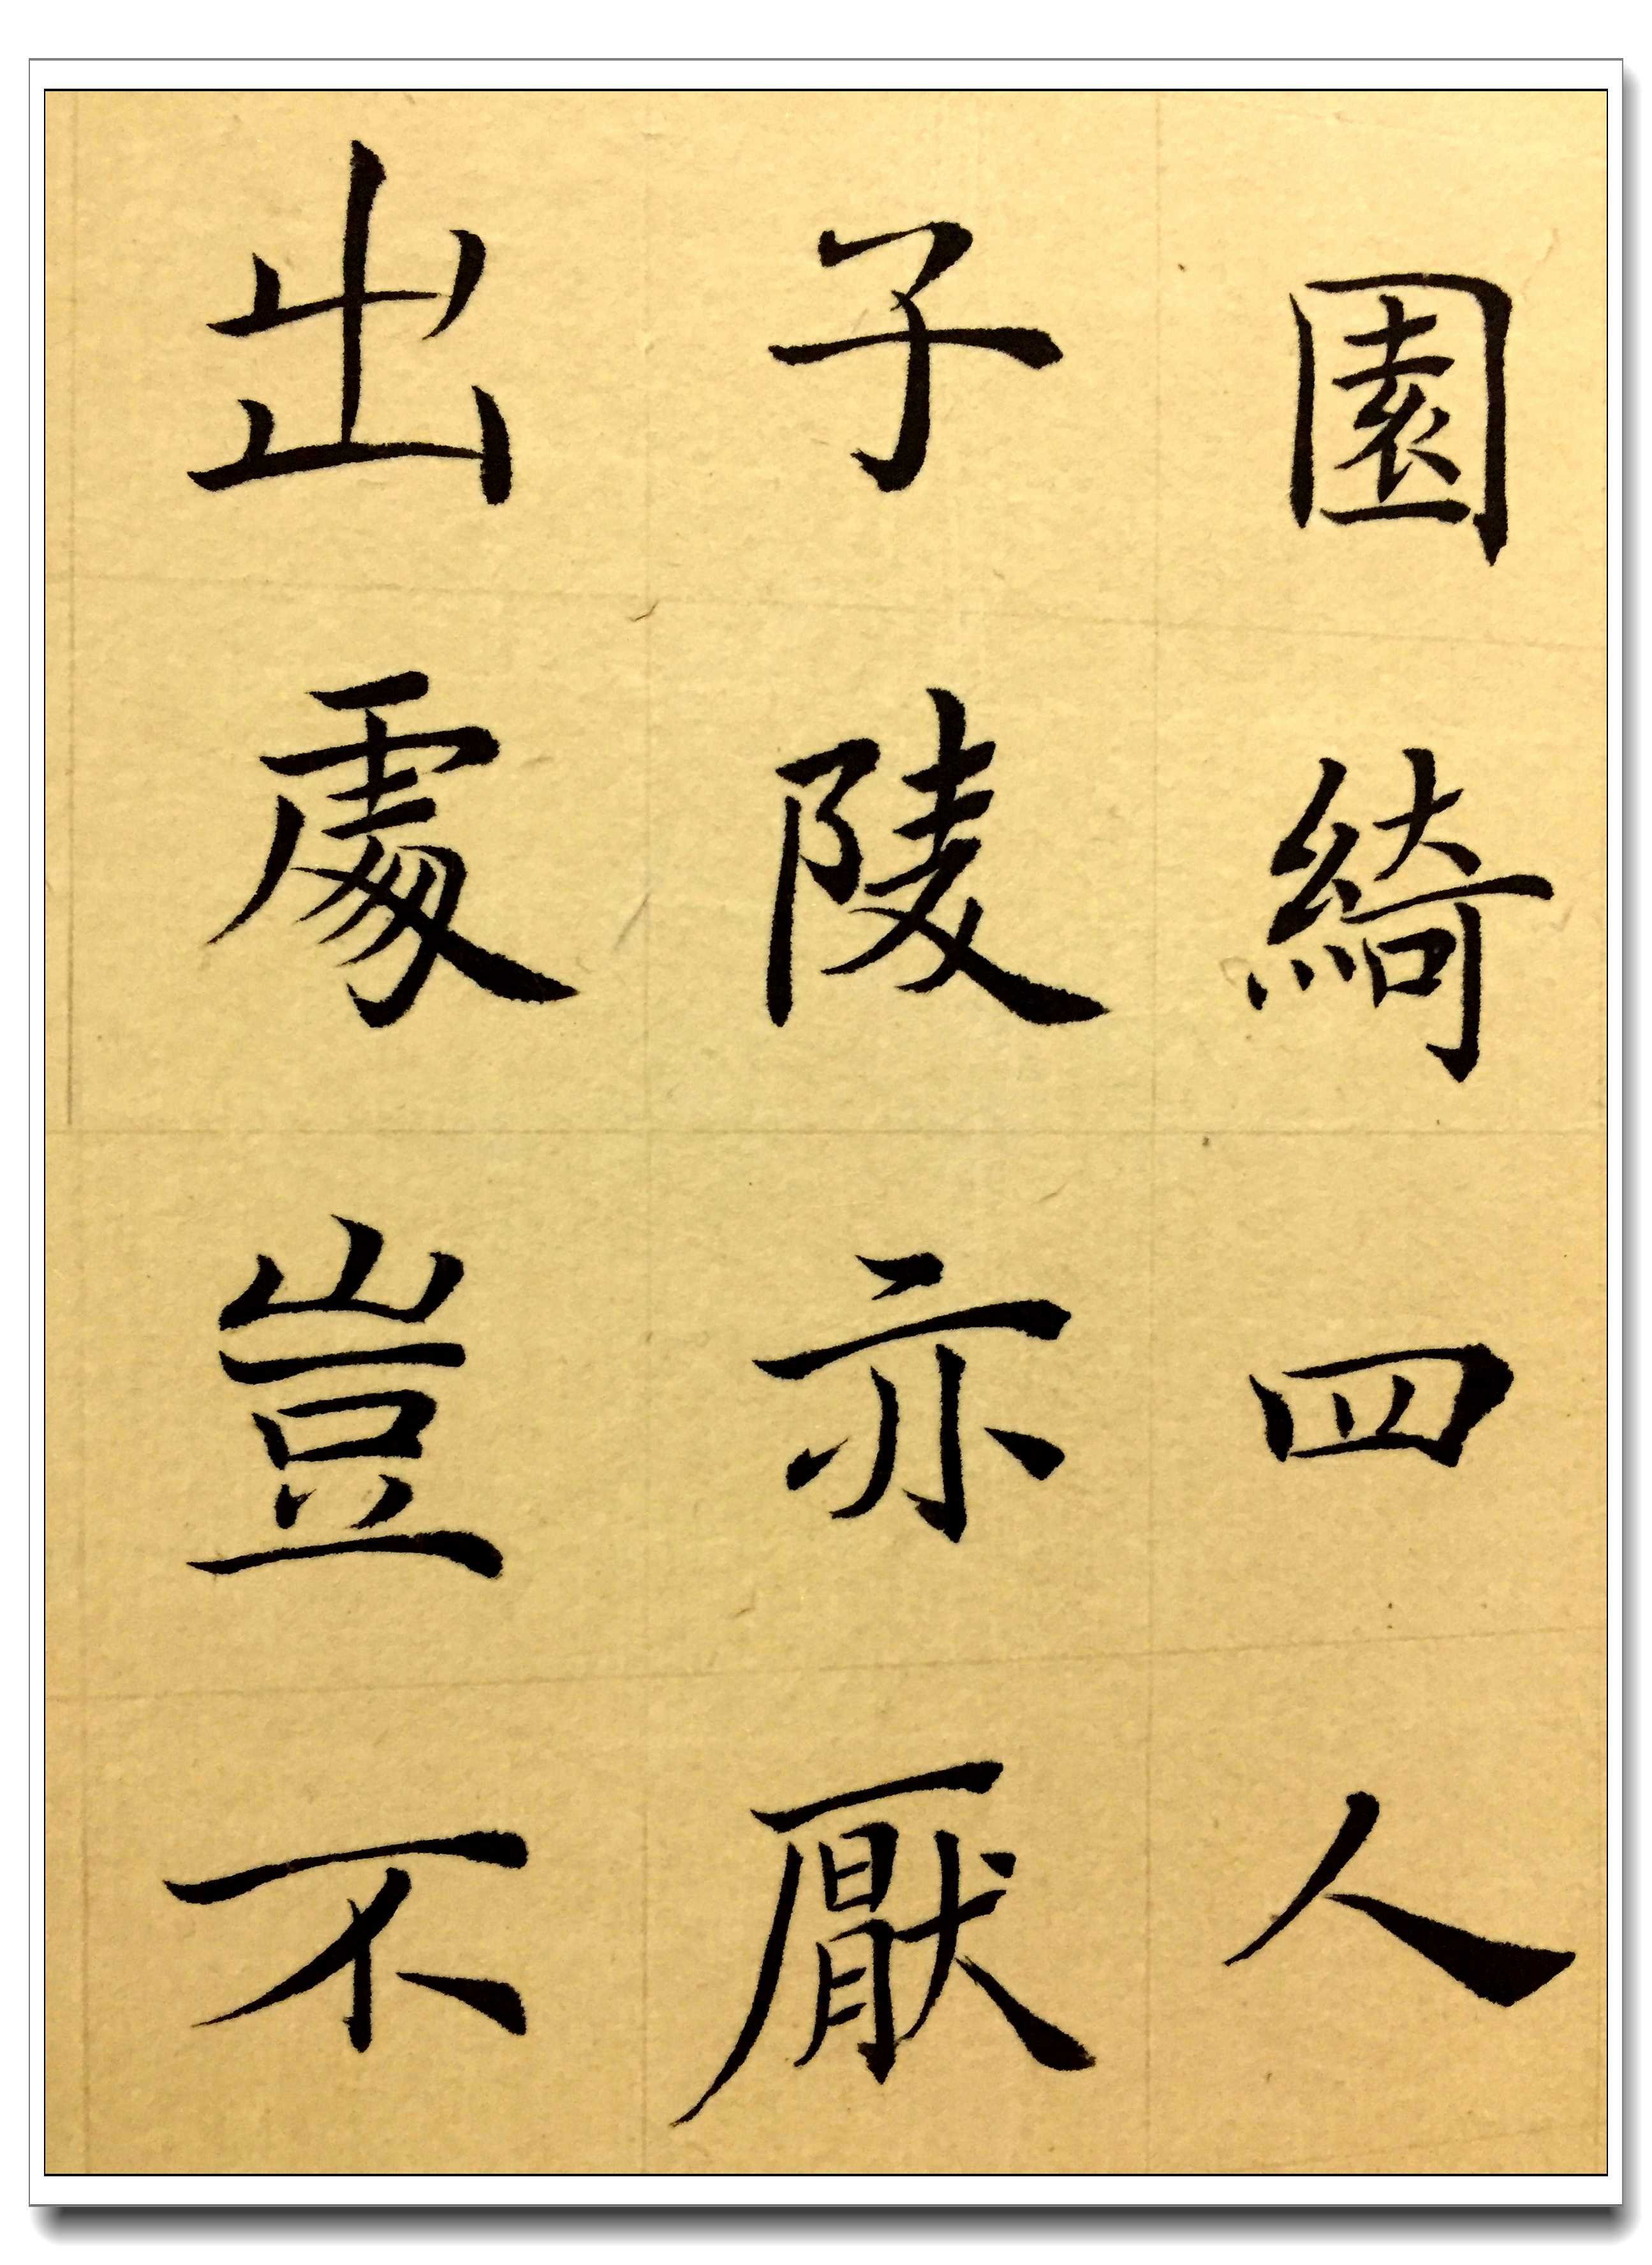 園綺四人
子陵亦厭
出處豈不